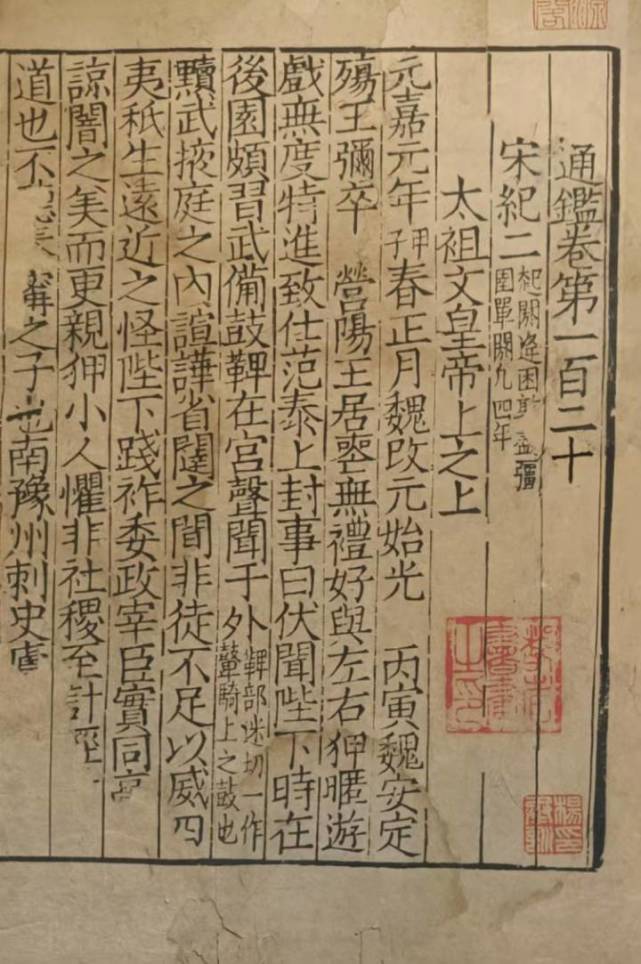 通鑑卷第一百二十
宋紀二起閼逢困敦盡彊圉單閼凡四年
太祖文皇帝上之上
元嘉元年甲子春正月魏改元始光 丙寅魏安定
殤王彌卒 營陽王居喪無禮好與左右狎暱遊
戲無度特進致仕范泰上封事曰伏聞陛下時在
後園頗習武備鼓鞞在宮聲聞于外鞞部迷切一作鼙騎上之鼓也
黷武掖庭之內諠譁省闥之間非徒不足以威四
夷秖生遠近之怪陛下踐祚委政宰臣實同高
諒闇之美而更親狎小人懼非社稷至計經
道也不
之子也南豫州刺史廬